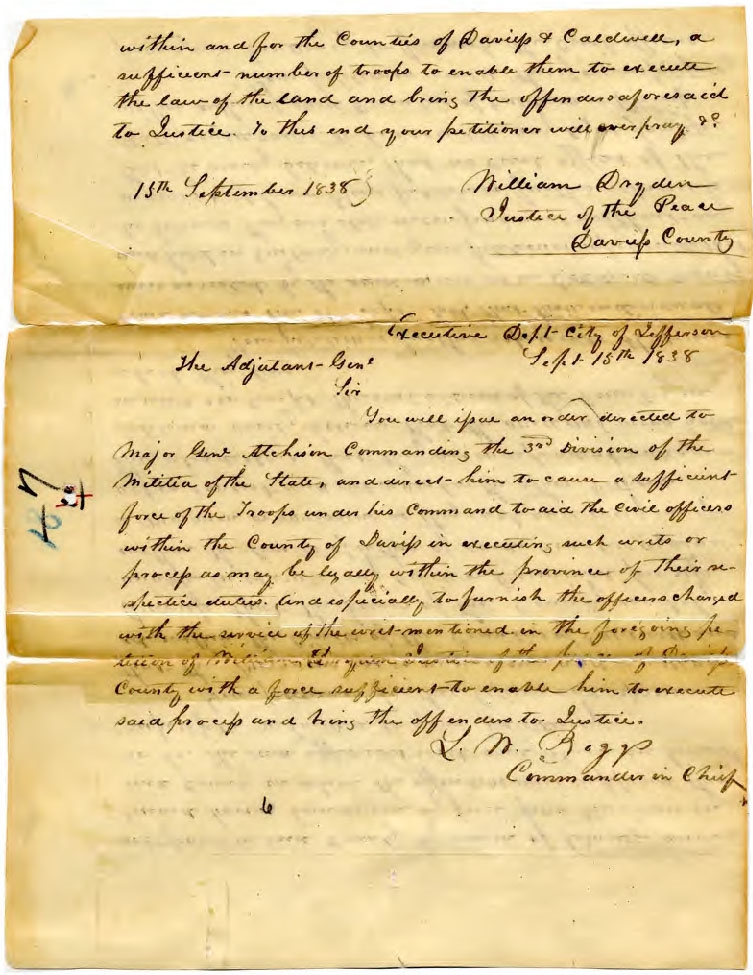 within and for the Counties of Daviess & Caldwell, a
sufficient number of troops to enable them to execute
the law of the land and bring the offenders aforesaid
to Justice. To this end your petitioner will ever pray &c
15th September 1838}
William Dryden
Justice of the Peace
Daviess County
Executive Dept City of Jefferson
Sept 15th 1838
The Adjutant-Genl
Sir
You will issue an order directed to
Major Genl Atchison Commanding the 3rd Division of the
Militia of the State, and direct him to cause a sufficient
force of the Troops under his Command to aid the civil officers
within the County of Daviess in executing such writs or
process as may be legally within the province of their re-
spective duties. And especially to furnish the officers charged
with the service of the writ mentioned in the foregoing pe-
tition of William Dryden Justice of the peace of Daviess
County with a force sufficient to enable him to execute
said process and bring the offenders to Justice.
L. W. Boggs
Commander in Chief
6